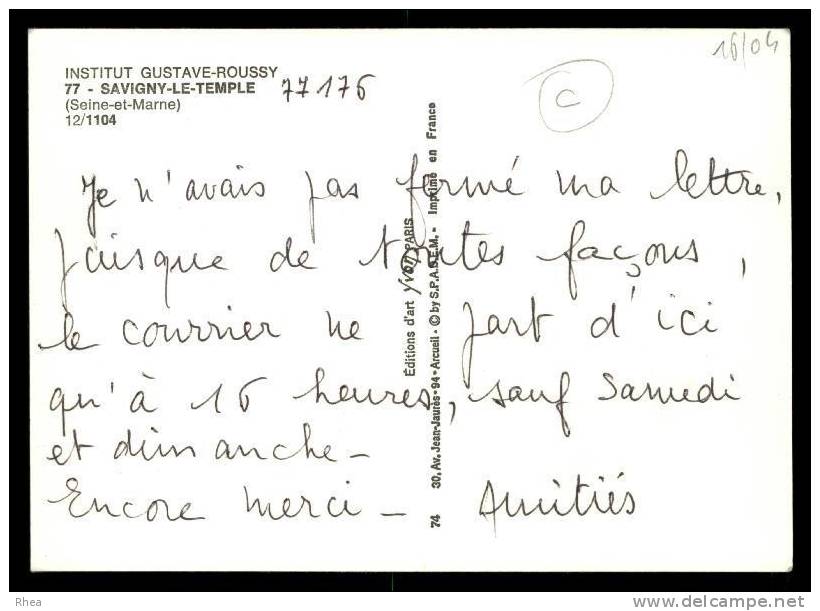 16/04
INSTITUT GUSTAVE-ROUSSY
77 - SAVIGNY-LE-TEMPLE 77176
(Seine-et-Marne)
12/1104
C
Je n'avais pas fermé ma lettre,
puisque de toutes façons,
le courrier ne part d'ici
qu'à 16 heures, sauf Samedi
et dimanche -
Encore merci - Amitiés
74 Editions d'art YVON PARIS
30, Av. Jean-Jaurès - 94 - Arcueil - © by S.P.A.D.E.M. - Imprimé en France
Rhea
delcampe.net